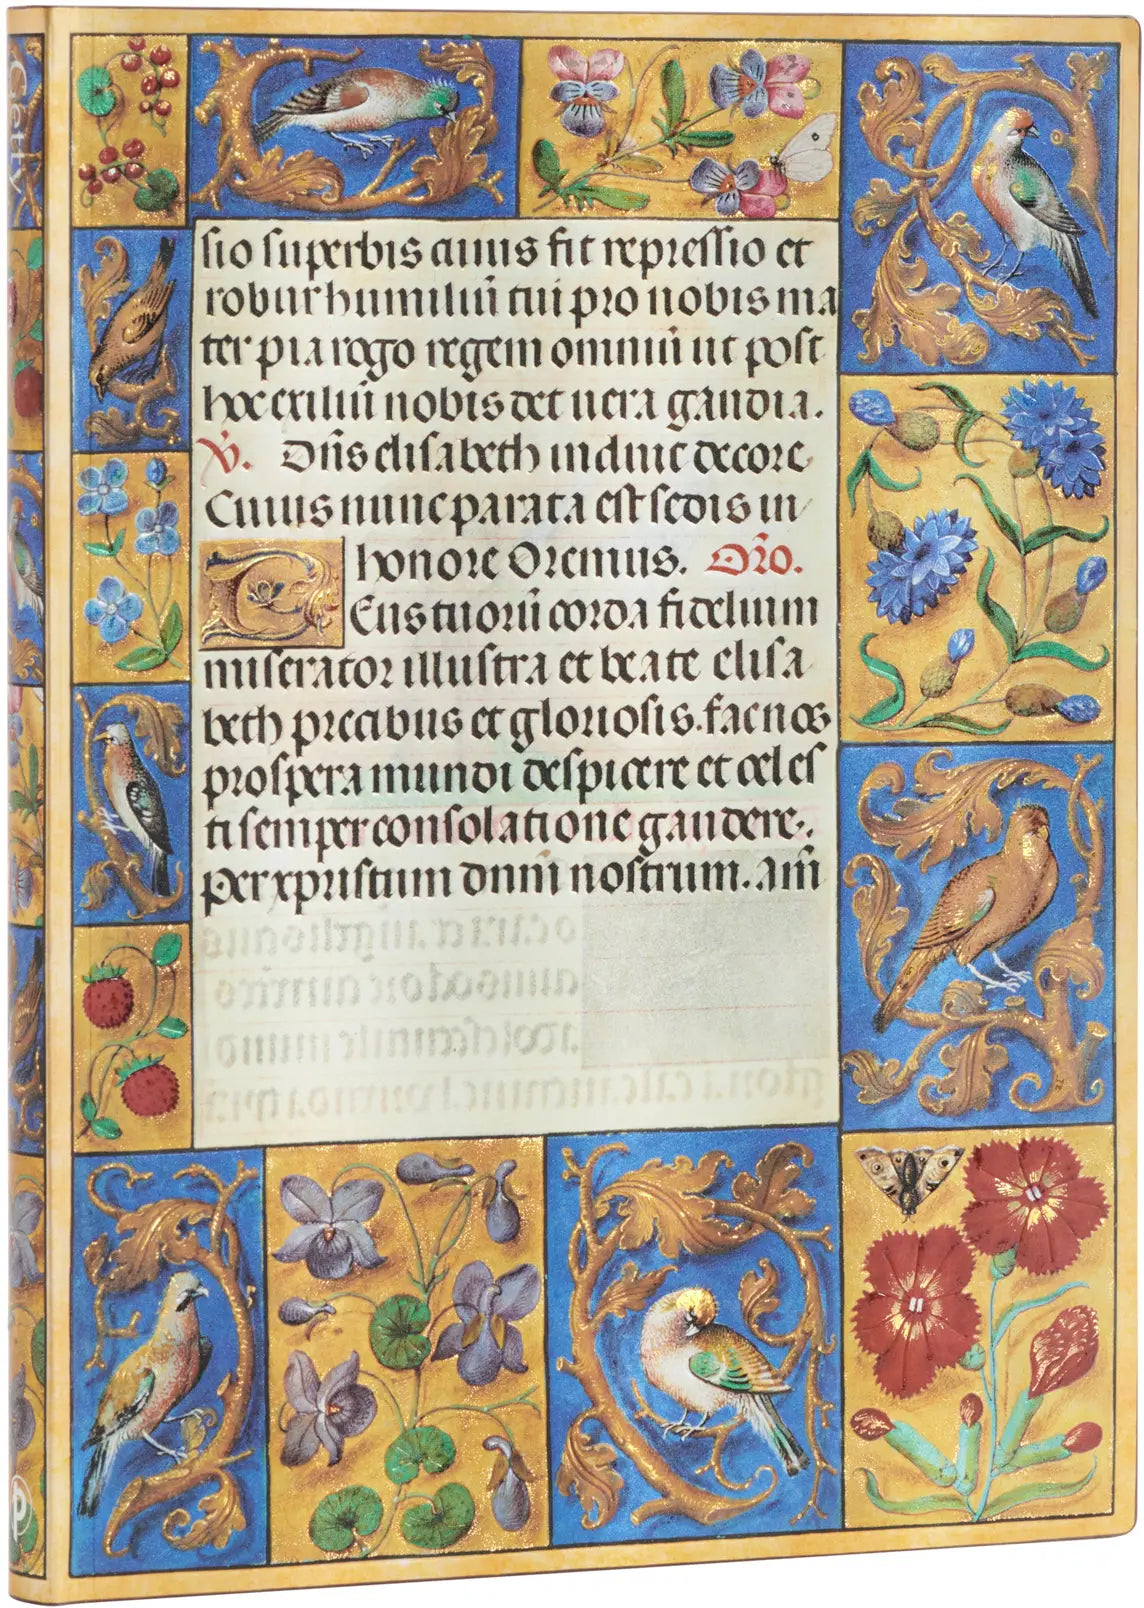 sio superbis cuius fit repressio et
robur humiliū tui pro nobis ma
ter pia rogo regem omniū ut post
hoc exiliū nobis det uera gaudia.
V. Dn̄s elisabeth induit decore
Cuius nunc parata est sedis in
honore Oremus. Or̄o.
Eus tuorū corda fidelium
miserator illustra et beate elisa
beth precibus et gloriosis. fac nos
prospera mundi despicere et celes
ti semper consolatione gaudere.
Per xpristum dnm̄ nostrum. Am̄